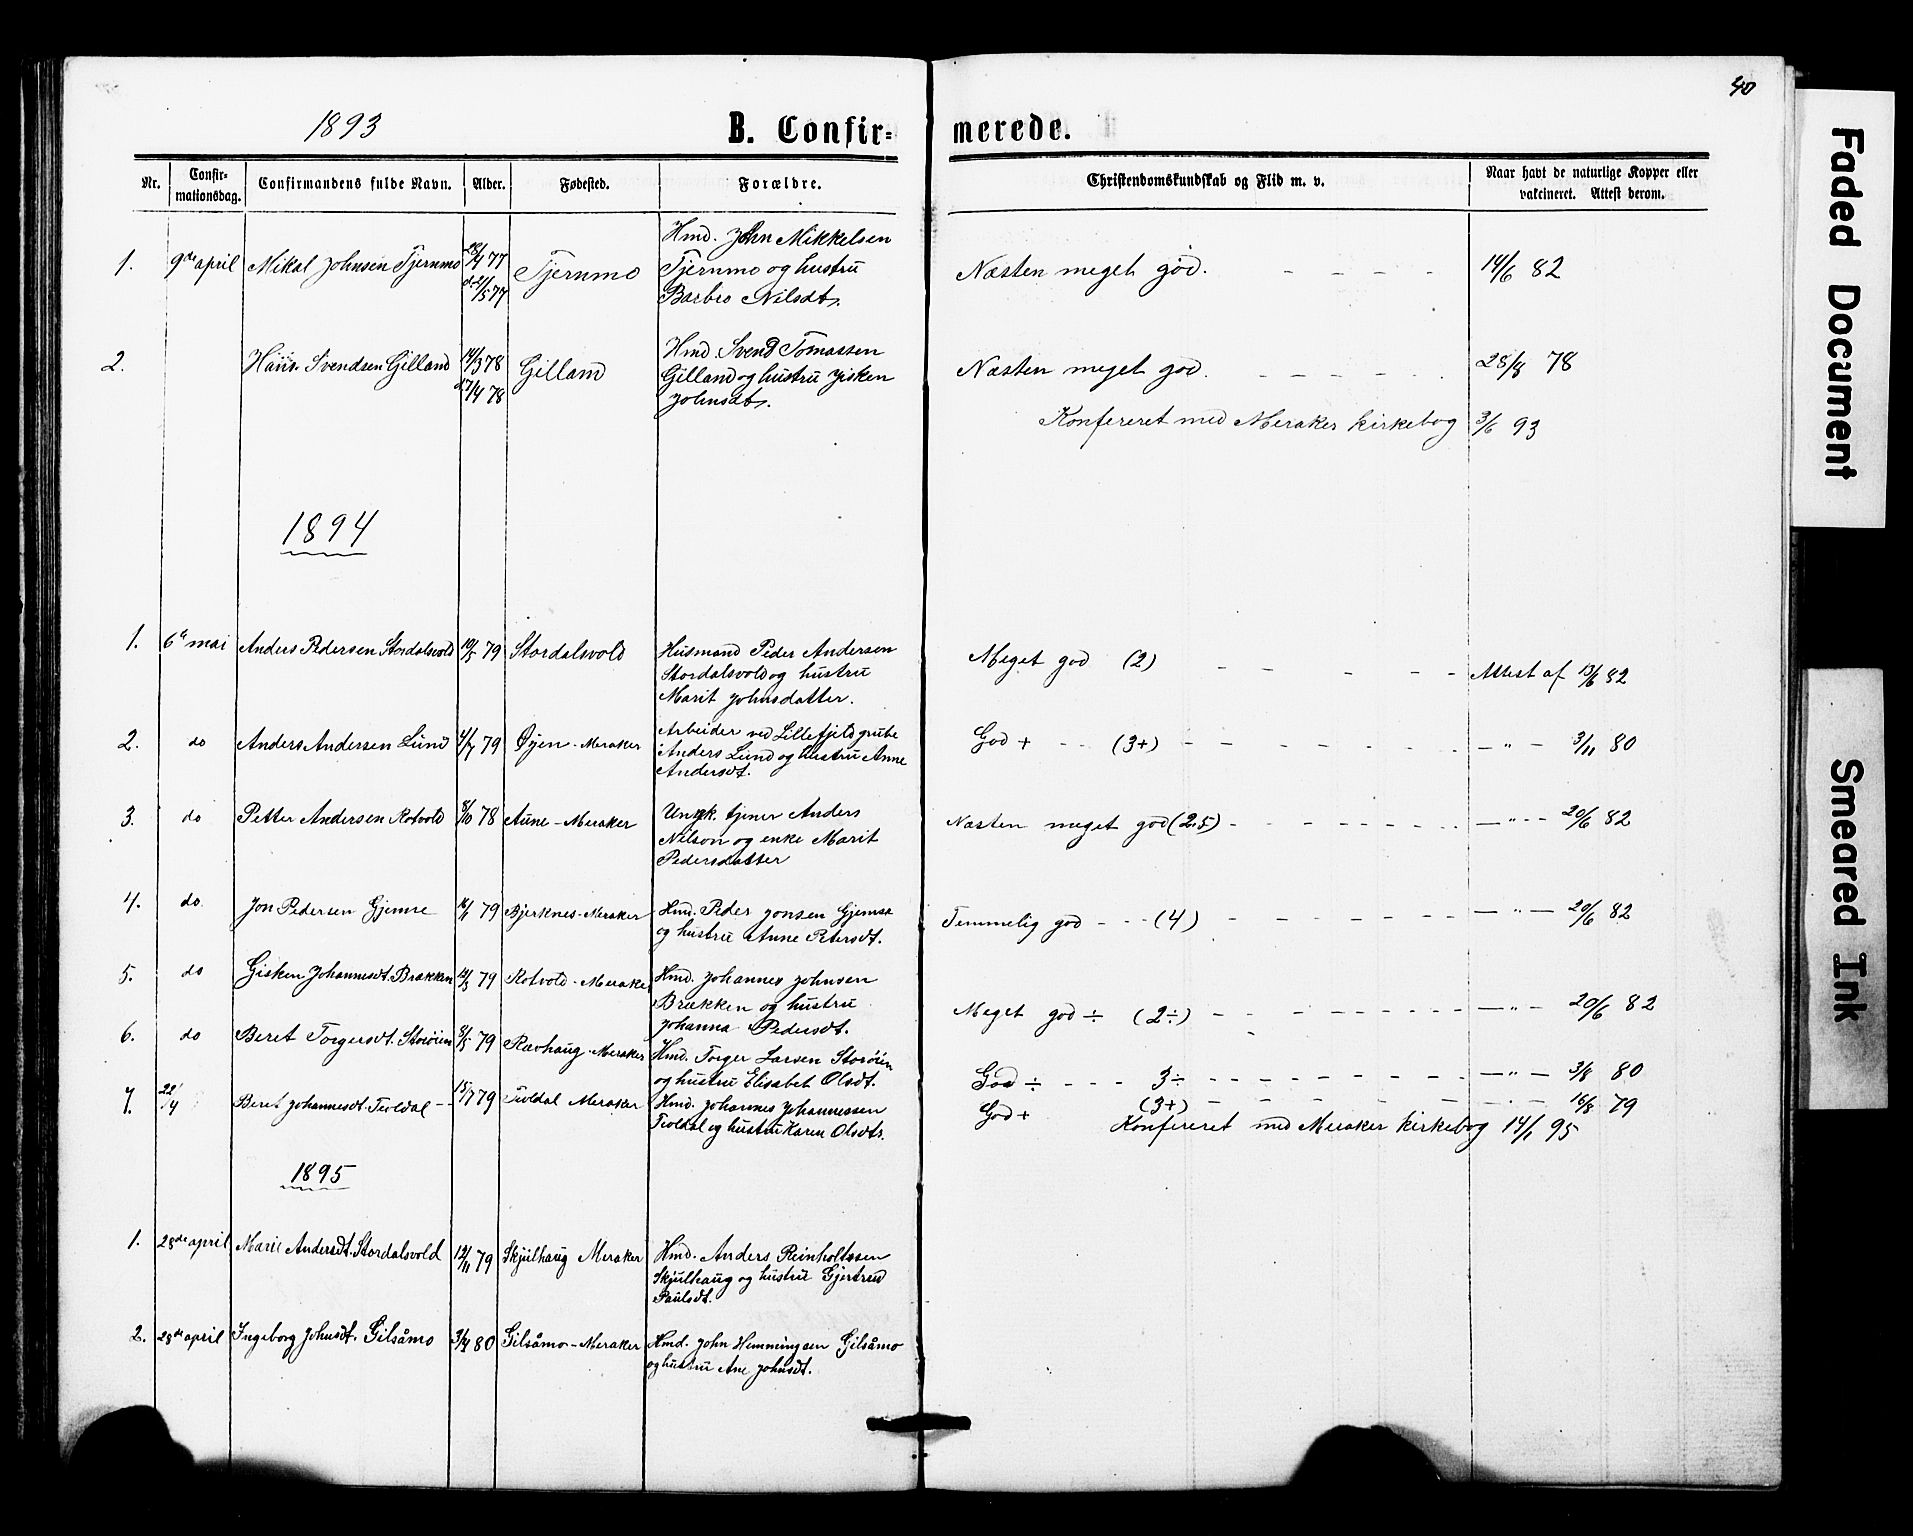 40
1893
B. Confir=
merede.
Nr.
Confir-
mationsdag.
Confirmandens fulde Navn.
Alder.
Fødested.
Forældre.
Christendomskundskab og Flid m. v.
Naar havt de naturlige Kopper eller
vakcineret. Attest derom.
Hmd. John Mikkelsen
1. 9de april Mikal Johnsen Tjernmo 28/4 77 Tjernmo Tjernmo og hustru Næsten meget god. - - - - 14/6 82
d. 21/5 77 Barbro Nilsdt.
Hmd. Svend Tomassen
2. Hans Svendsen Gilland 14/3 78 Gilland Gilland og hustru Jisken Næsten meget god. - - - - - 28/8 78
d 7/4 78 Johnsdt.
Konfereret med Meraker kirkebog 3/6 93
1894
1. 6te mai Anders Pedersen Stordalsvold 10/5 79 Stordalsvold Husmand Peder Andersen Meget god (2) - - - - - Attest af 13/6 82
Stordalsvold og hustru
Marit Johnsdatter.
Arbeider ved Lillefjeld grube
2. do Anders Andersen Lund 4/7 79 Øyen - Meraker Anders Lund og hustru Anne God + - - (3+) - - - - - - - „ - 3/11 80
Andersdt.
3. do Petter Andersen Rotvold 8/10 78 Aune - Meraker Ungk. tjener Anders Næsten meget god (2.5) - - - - - - - „ - - 20/6 82
Nilson og enke Marit
Pedersdatter
4. do. Jon Pedersen Gjemse 16/1 79 Bjerknes - Meraker Hmd. Peder Jonsen Gjemse Temmelig god - - - (4) - - - - - - - „ - 20/6 82
og hustru Anne Petersdt.
5. do Gisken Johannesdt. Brækken 12/3 79 Rotvold - Meraker Hmd. Johannes Johnsen
Brækken og hustru Meget god ÷ (2÷) - - - - - - - „ - 20/6 82
Johanna Pedersdt.
6. do Beret Torgersdt. Storøien 8/5 79 Ravhaug - Meraker Hmd. Torger Larsen Storøien
og hustru Elisabet Olsdt. God ÷ - - - - 3÷ - - - - - - - „ - 3/8 80
7. 22/4 Beret Johannesdt. Tevldal - - 15/7 79 Tevldal Meraker Hmd. Johannes Johannessen God + (3+) - - - - - - - 16/8 79
Tevldal og hustru Karen Olsdt. Konfereret med Meraker kirkebog 14/1 95
1895
1. 28de april Marie Andersdt. Stordalsvold 12/11 79 Skjulhaug Meraker Hmd. Anders Reinholtssen
Skjulhaug og hustru Gjertrud
Paulsdt.
2. 28de april Ingeborg Johnsdt. Gilsåmo 3/4 80 Gilsåmo - Meraker Hmd. John Hemmingsen Gilsåmo
og hustru Ane Johnsdt.
Faded Document
Smeared Ink